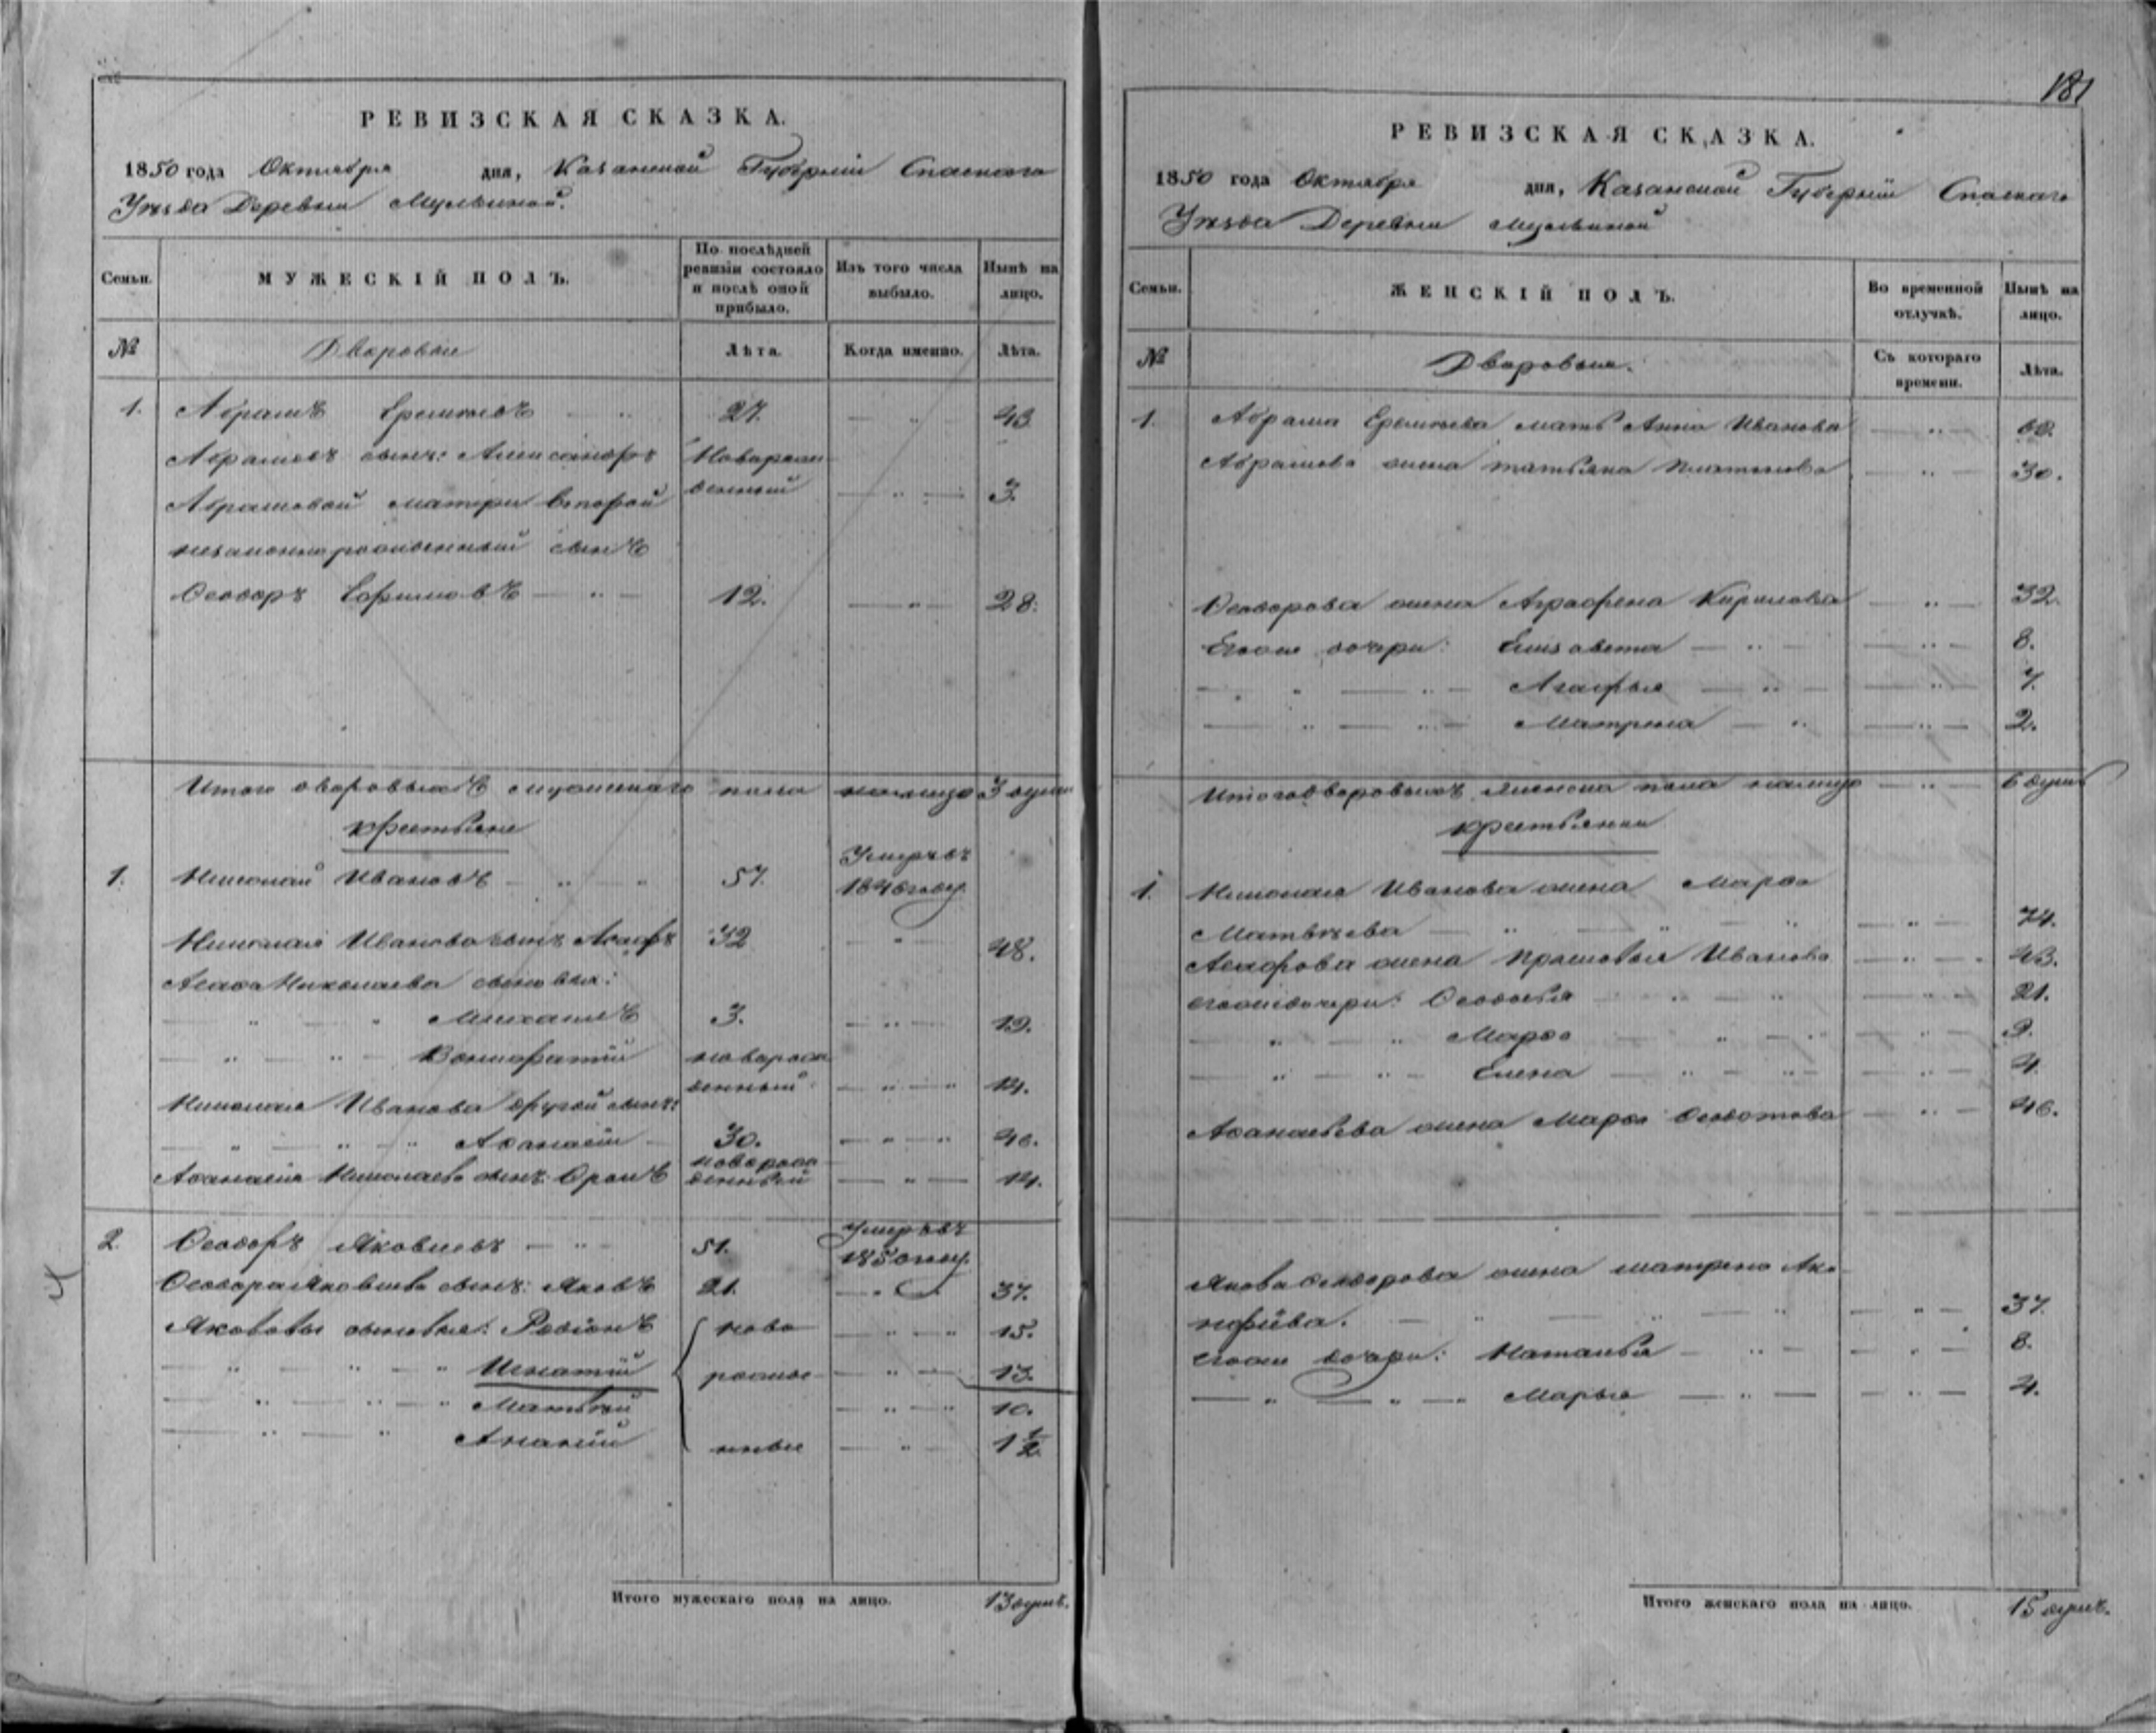 РЕВИЗСКАЯ СКАЗКА.
1850 года Октября дня, Казанской Губернии Спаского
Уѣзда Деревни Мульвиной.
Семьи.
МУЖЕСКІЙ ПОЛЪ.
По послѣдней ревизіи состояло и послѣ оной прибыло.
Изъ того числа выбыло.
Нынѣ на лицо.
№
Дворовые
Лѣта.
Когда именно.
Лѣта.
1. Абрамъ Еремѣевъ 27. 43
Абрамовъ сынъ: Александръ Новорож
денный 3.
Абрамовой матери второй
незаконнорожденный сынъ
Ѳеодоръ Ефимовъ 12. 28.
Итого дворовыхъ мужескаго пола налицо 3 души
крестьяне
1. Николай Ивановъ 57. Умеръ въ
184 году
Николая Иванова сынъ 32 48.
Николаева сыновья:
Михаилъ 3. 19.
Вонифатій новорож
денный 14.
Николая Иванова другой сынъ:
Аѳанасій 30. 46.
Аѳанасія Николаева сынъ: новорож
денный 14.
2. Ѳеодоръ Яковлевъ 51. Умеръ въ
1850 году
Ѳеодора Яковлева сынъ: Яковъ 21. 37.
Яковавы сыновья: Родіонъ ново 15.
Игнатій рожде 13.
Матвѣй 10.
Ананій нные 1 1/2
Итого мужескаго пола на лицо. 13 душъ.
181
РЕВИЗСКАЯ СКАЗКА.
1850 года Октября дня, Казанской Губерніи Спаскаго
Уѣзда Деревни Мульвиной
Семьи.
ЖЕНСКІЙ ПОЛЪ.
Во временной отлучкѣ.
Нынѣ на лицо.
№
Дворовые.
Съ котораго времени.
Лѣта.
1. Абрама Еремѣева мать Анна Иванова 60.
Абрамова жена татьяна Платонова 30.
Ѳеодорова жена Аграфена Кирилова 32.
Егоже дочери: Елизавета 8.
Агафья 7.
Матрена 2.
Итого дворовыхъ женска пола налицо 6 душъ
крестьянки
1. Николая Иванова жена Марѳа
Матвѣева 74.
жена Прасковья Иванова 43.
егоже дочери: Ѳеодосья 21.
Марѳа 9.
Елена 4
Аѳанасьева жена Марѳа Ѳедотова 46.
Якова Ѳеодорова жена матрена
37.
егоже дочери: Наталья 8.
Марья 4.
Итого женскаго пола на лицо. 15 душъ.